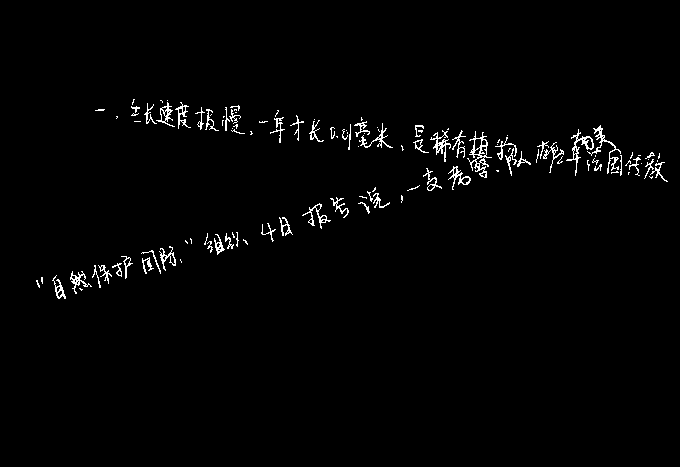 一,生长速度极慢,一年才长0.9毫米,是稀有植物
"自然保护国防"组织、4日报告说,一支考 队 法国传教